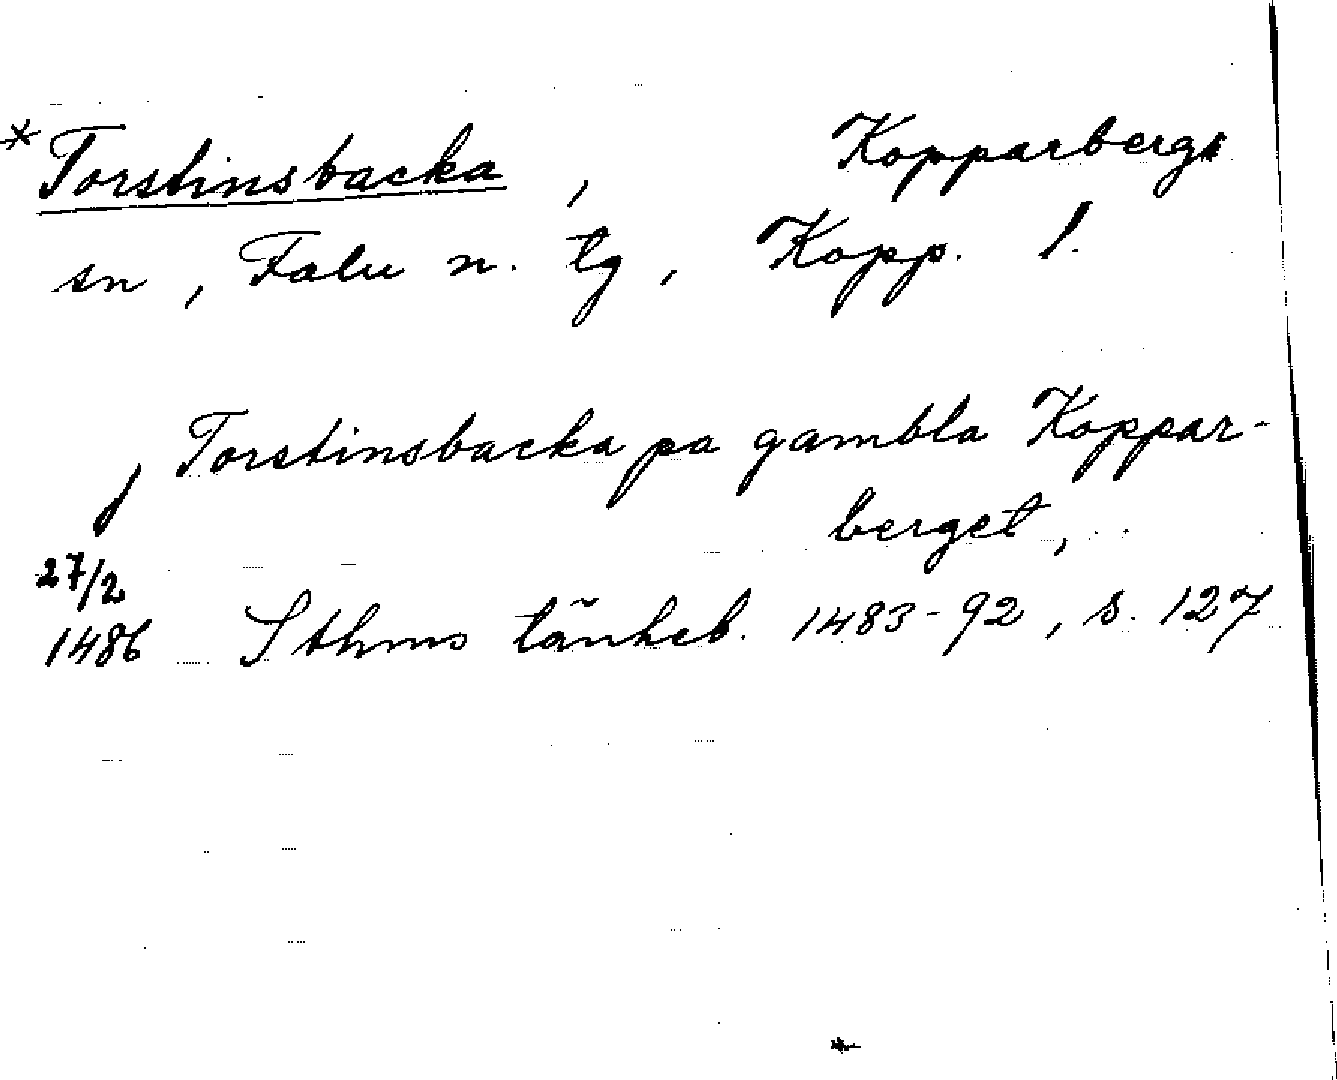 *Torstinsbacka, Kopparbergs
sn, Falu n. tg, Kopp. l.
, Torstinsbacka pa gambla Koppar-
berget, ..
27/2
1486 Sthms tänkeb. 1483-92, s. 127